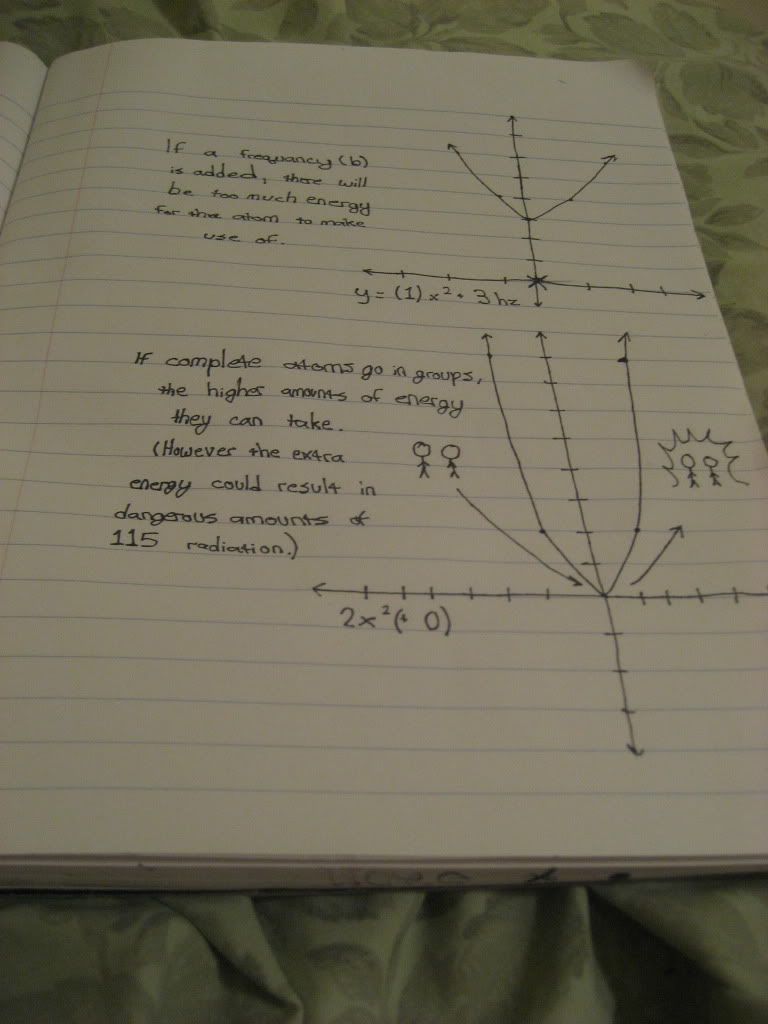 If a frequancy (b)
is added, there will
be too much energy
for the atom to make
use of.
y = (1) x² + 3 hz
If complete atoms go in groups,
the higher amounts of energy
they can take.
(However the extra
energy could result in
dangerous amounts of
115 radiation.)
2x² (+ 0)